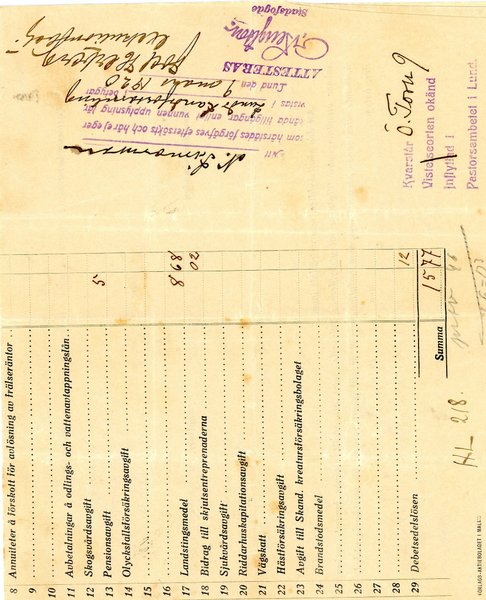 8 Annuiteter å förskott för avlösning av frälseräntor
9
10
11 Avbetalningar å odlings- och vattenavtappningslån
12 Skogsvårdsavgift
13 Pensionsavgift 5
14 Olycksfallsförsäkringsavgift
15
16
17 Landstingsmedel 8 68
18 Bidrag till skjutsentreprenaderna 02
19 Sjukvårdsavgift
20 Riddarhuskapitationsavgift
21 Vägskatt
22 Hästförsäkringsavgift
23 Avgift till Skand. kreatursförsäkringsbolaget
24 Brandstodsmedel
25
26
27
28
29 Debetsedelslösen 12
Summa 15 77
HL 218
Kvarstår Ö. Torn 9
Vistelseorten okänd
Inflyttad i
Pastorsembetet i Lund.
Att
som härstädes förgäfves eftersökts och här ej eger
kända tillgångar enligt vunnen upplysning lär
vistas i
betygar
Lund den 9 mars 1920
ATTESTERAS
Stadsfogde